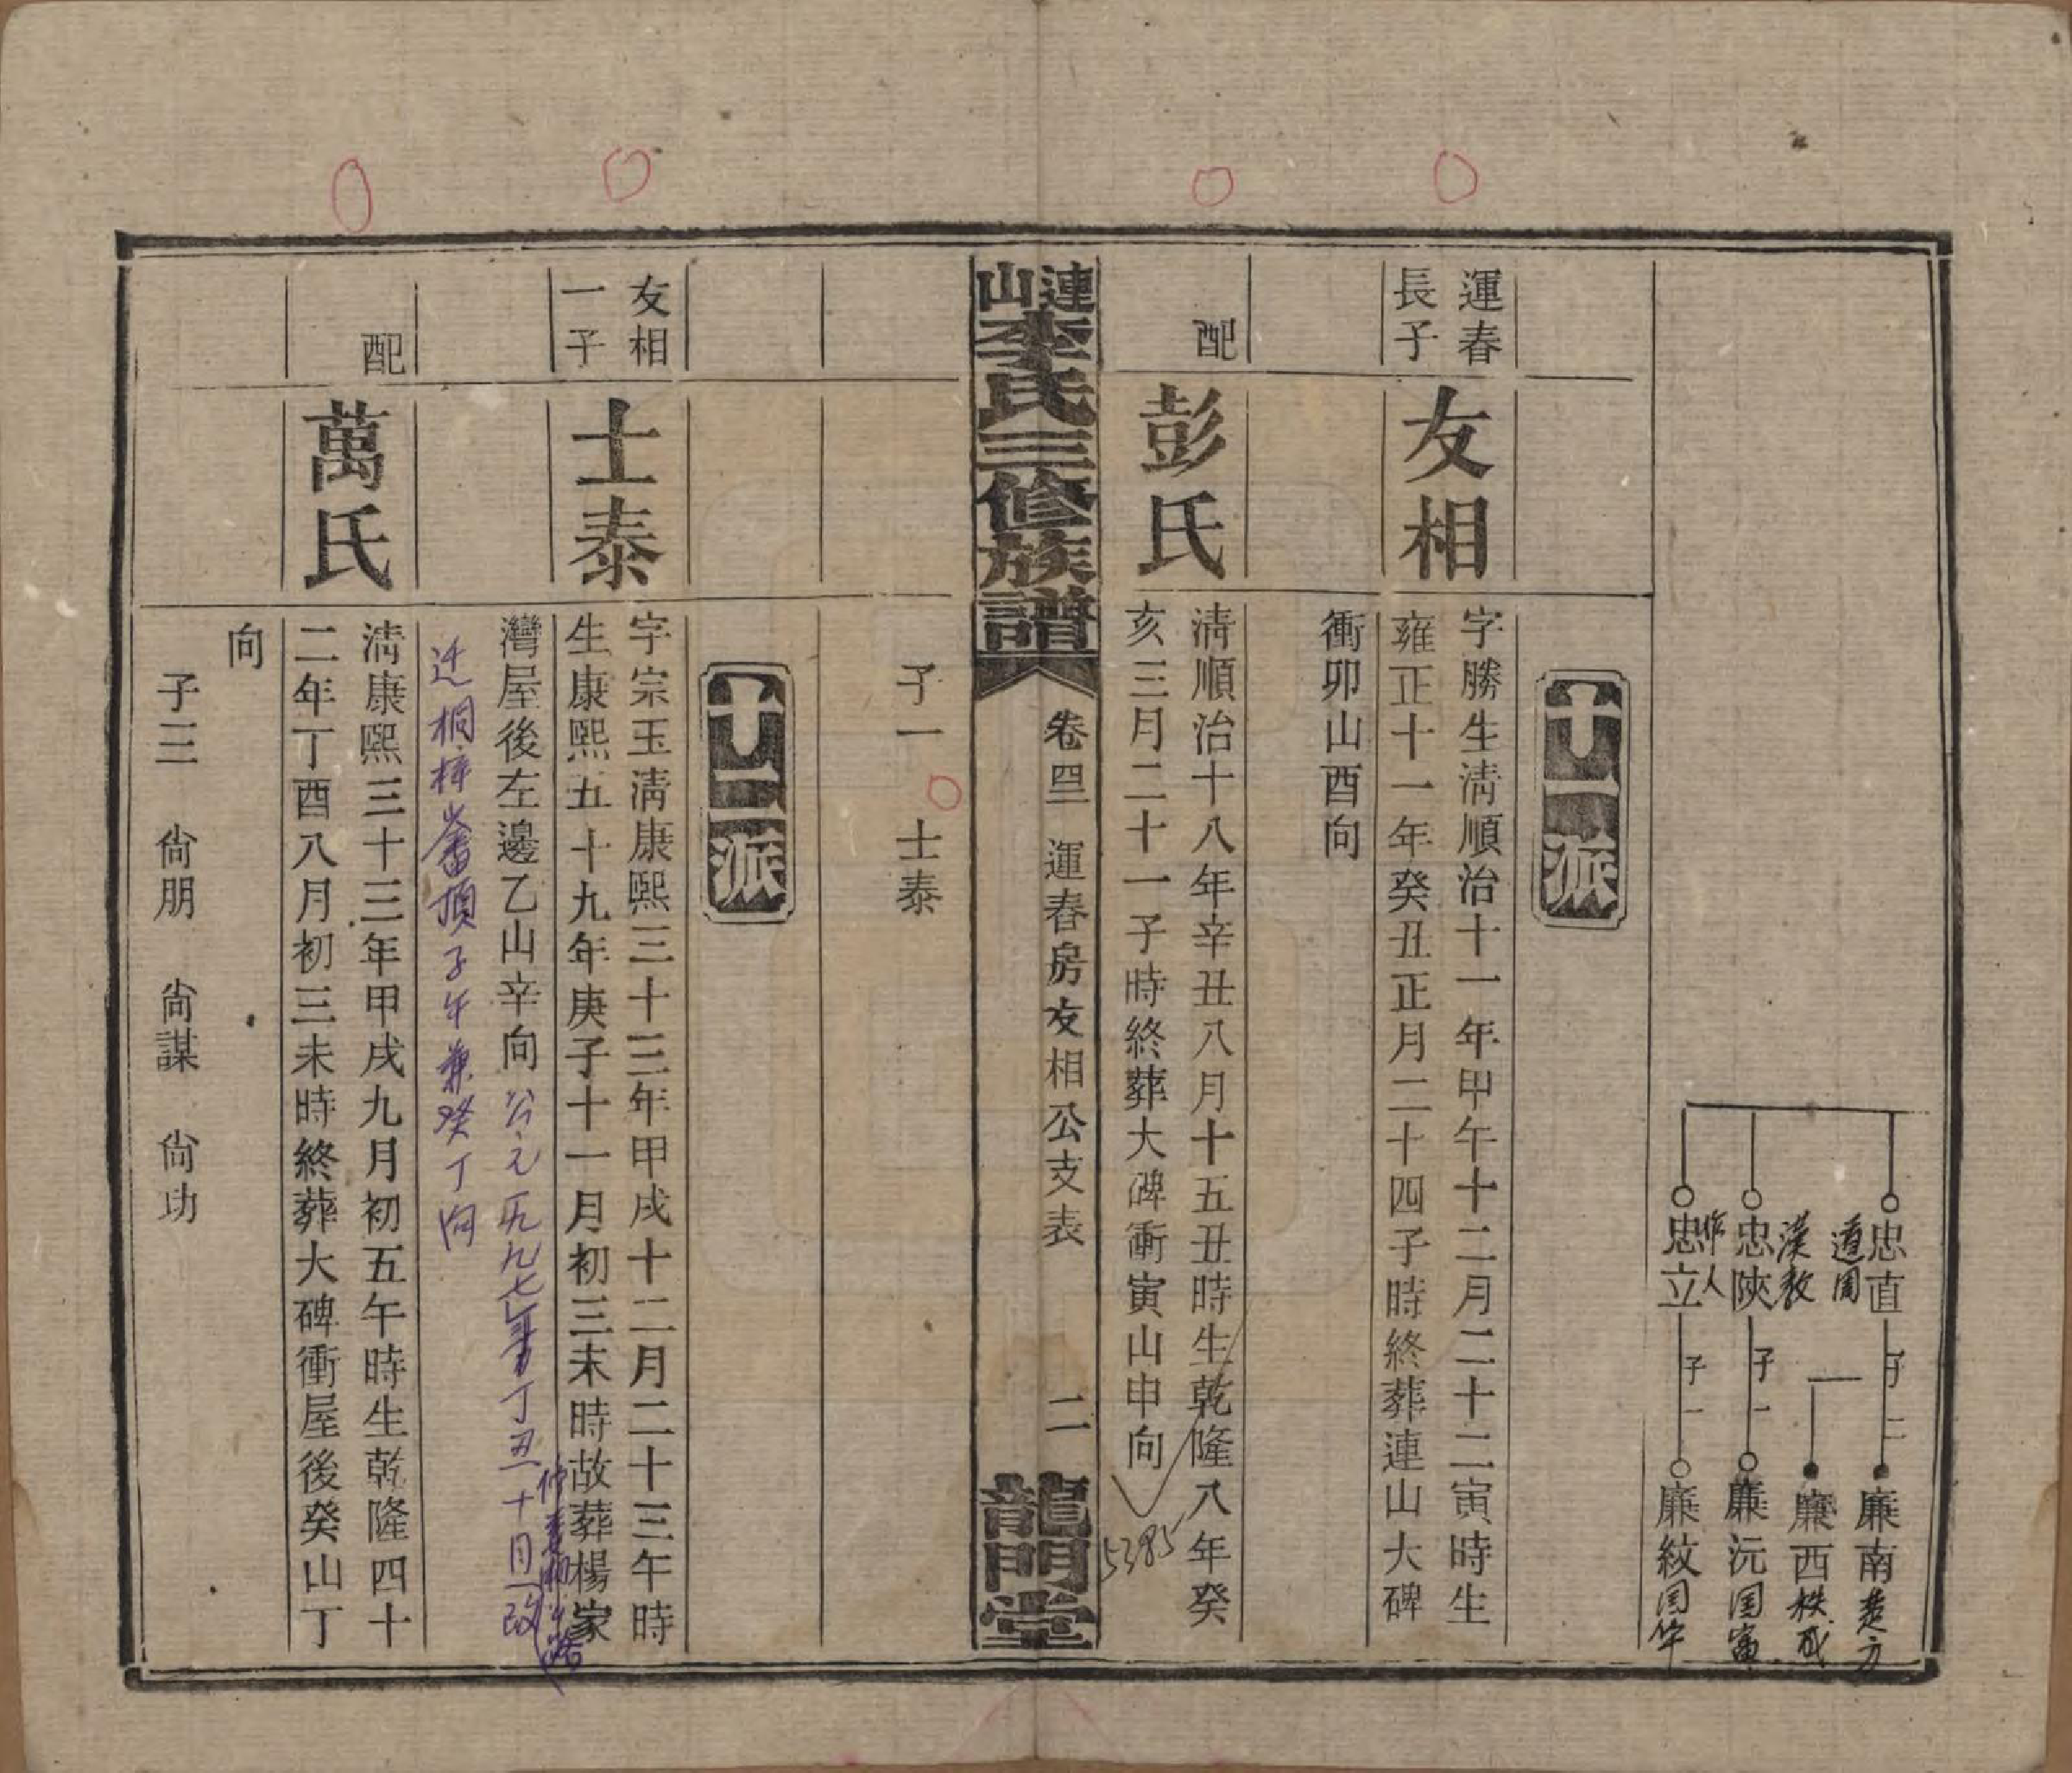 忠直 道周
忠陝 漢敎
忠立 作人
子二
子一
子一
廉南 楚方
廉西 秩成
廉沅 国富
廉紋 国华
十一派
運春
長子
友相
字勝生淸順治十一年甲午十二月二十二寅時生
雍正十一年癸丑正月二十四子時終葬連山大碑
衝卯山酉向
配
彭氏
淸順治十八年辛丑八月十五丑時生乾隆八年癸
亥三月二十一子時終葬大碑衝寅山申向
5385
連山李氏三修族譜
卷四 運春房友相公支表
二
龍門堂
子一 士泰
十二派
友相
一子
士泰
字宗玉淸康熙三十三年甲戌十二月二十三午時
生康熙五十九年庚子十一月初三未時故葬楊家
灣屋後左邊乙山辛向 公元一九九七年丁丑十月改
迁桐梓崙頂子午兼癸丁向
配
萬氏
淸康熙三十三年甲戌九月初五午時生乾隆四十
二年丁酉八月初三未時終葬大碑衝屋後癸山丁
向
子三 尙朋 尙謀 尙功